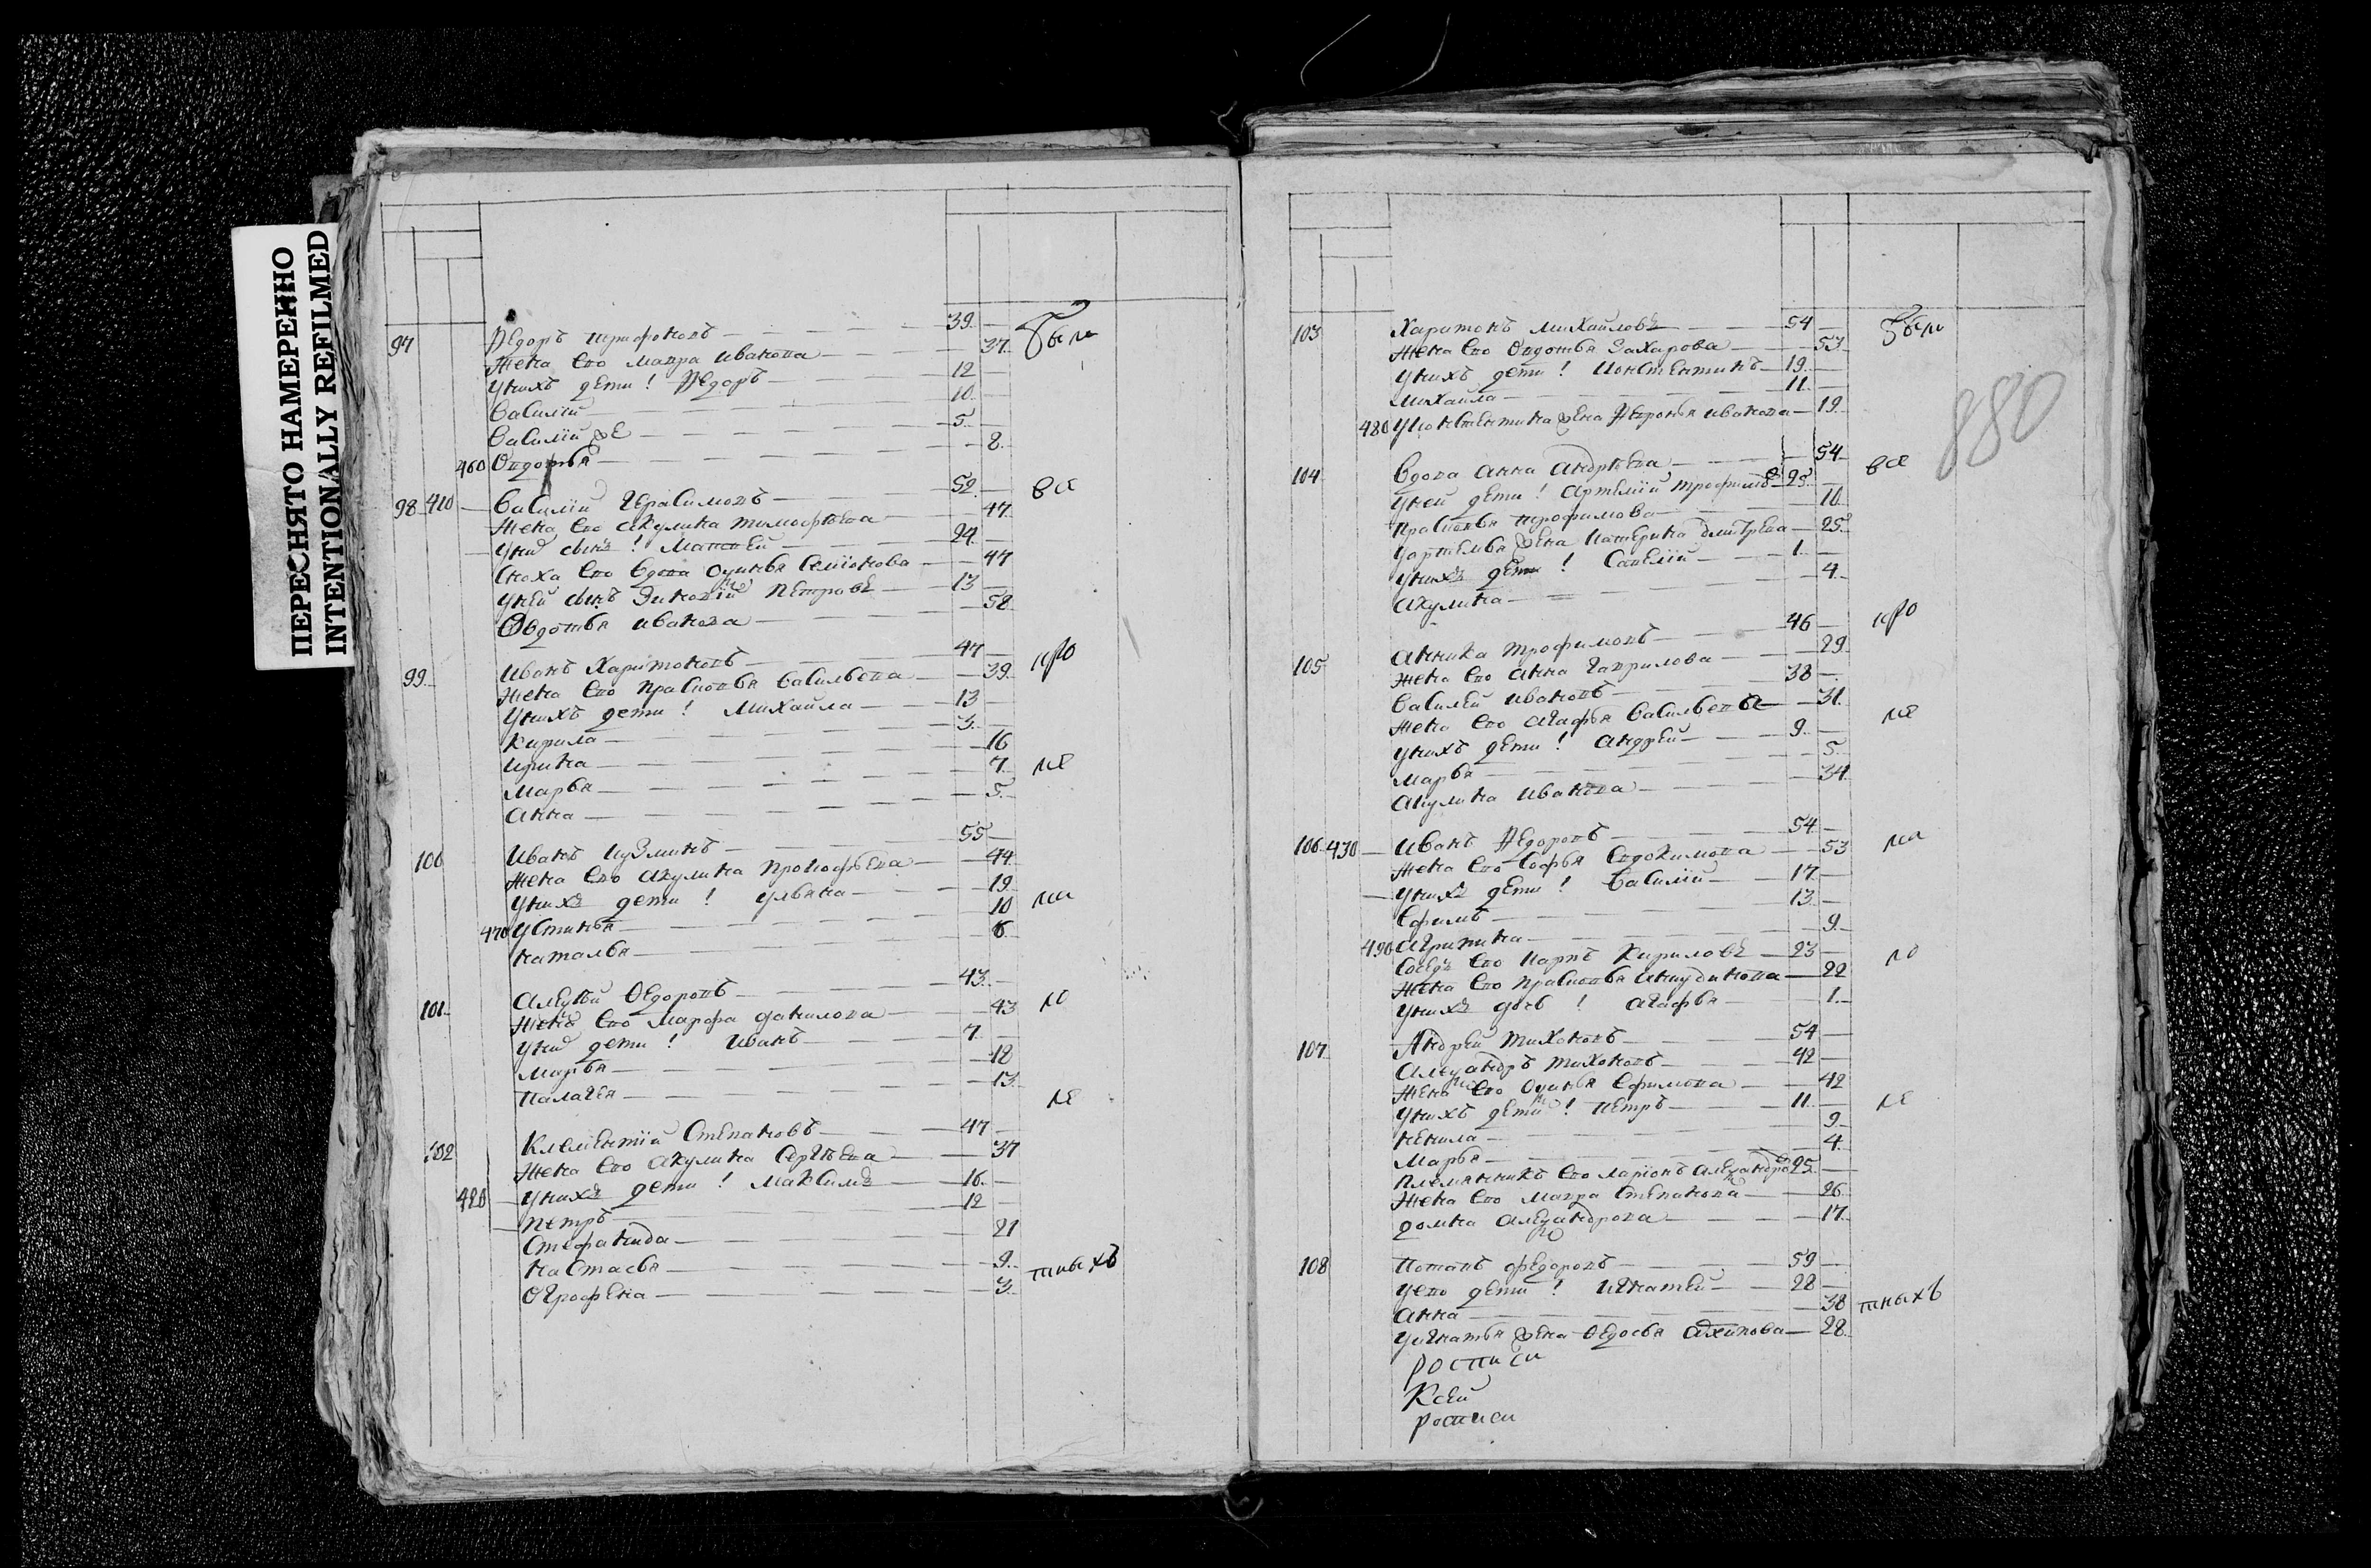 ПЕРЕСНЯТО НАМЕРЕННО
INTENTIONALLY REFILMED
97 Федоръ трифоновъ 39
Жена Его мавра иванова 37 были
унихъ дети! Федоръ 12
василїи 10
василїи же 5
460 Овдотья 8
98 410 василїи герасимовъ 52 все
Жена Его акулина тимофѣева 47
унид сынъ! Матвей 24
сноха Его вдова Оѯинья семїонова 47
уней сынъ Зиновїи Петровъ 13
Овдотья иванова 58
99 иванъ Харитоновъ 47
Жена Его прасковья васильева 39 кро
унихъ дети! михайла 13
кирила 3
ирина 16
марья 7 ме
анна 5
100 иванъ кузминъ 55
Жена Его акулина прокофьева 44
унихъ дети! ульяна 19
470 устинья 10 ма
наталья 6
101 алеѯѣй Ѳедоровъ 43
Жена Его Марфа данилова 43 ло
унид дети! иванъ 7
марья 18
палагея 13
ле
102 климентїи Степановъ 47
Жена Его акулина сергѣева 37
420 унихъ дети! Максимъ 16
петръ 12
Стефанида 21
настасья 9
Огрофена 3 тныхъ
880
103 Харитонъ михайловъ 54 были
Жена Его Овдотья Захарова 53
унихъ дети! констентинъ 19
михайла 11
480 уконстентина жена Февронья иванова 19
104 вдова анна андрѣева 54 все
уней дети! артемїи трофимовъ 25
прасковья трофимова 10
уартемья жена катерина дмитрева 25
унихъ дети! савелїи 1
акулина 4
105 аника трофимовъ 46 кро
Жена Его анна гаврилова 29
василеи ивановъ 38
Жена Его агафья васильева 31
унихъ дети! андрей 9 ме
марья 5
акулина иванова 34
106 430 иванъ Федоровъ 54
Жена Его софья евдокимова 53 ма
унихъ дети! василїи 17
Ефимъ 13
490 агрипина 9
соседъ Его карпъ кириловъ 23 ло
Жена Его прасковья анкудинова 22
унихъ дочь! агафья 1
107 андрей тихоновъ 54
алеѯандръ тихоновъ 42
Жена Его Оѯинья Ефимова 42
унихъ дети! петръ 11 ле
ненила 9
марья 4
племянникъ Его ларїонъ алеѯандро 25
Жена Его мавра степанова 26
домна алеѯандрова 17
по
108 потапъ федоровъ 59
уево дети! игнатей 28
анна 38 тныхъ
уигнатья жена Ѳедосья архипова 28
росписи
Ксей
росписи